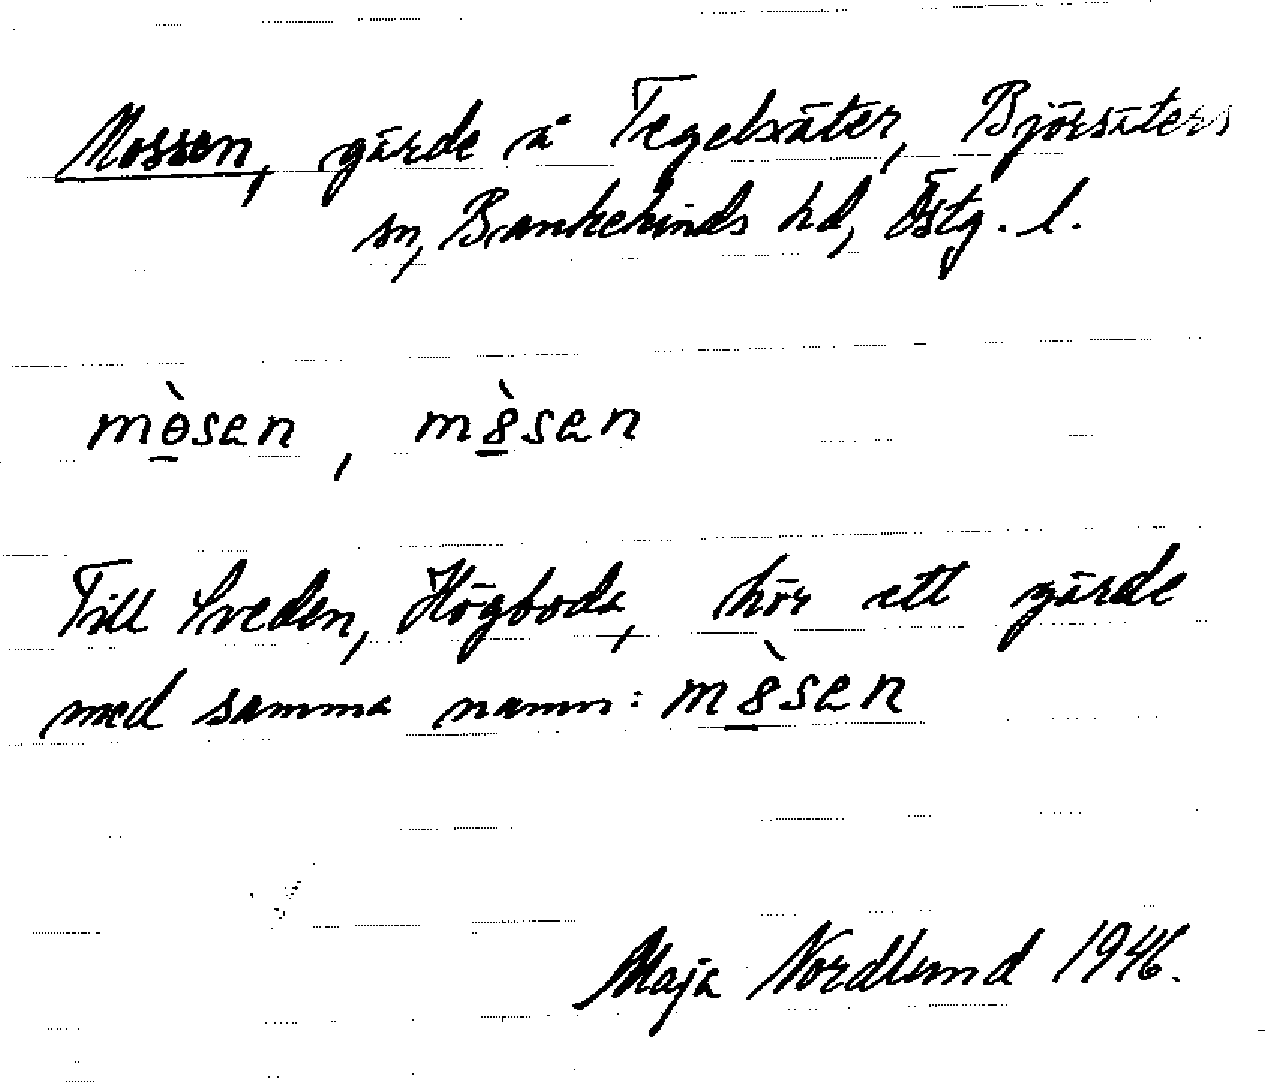 Mossen, gärde å Tegelsäter, Björsäters
sn, Bankekinds hd, Östg. l.
mòsen, mòsen
Till Sveden, Högboda, hör ett gärde
med samma namn: mòsen
Maja Nordlund 1946.